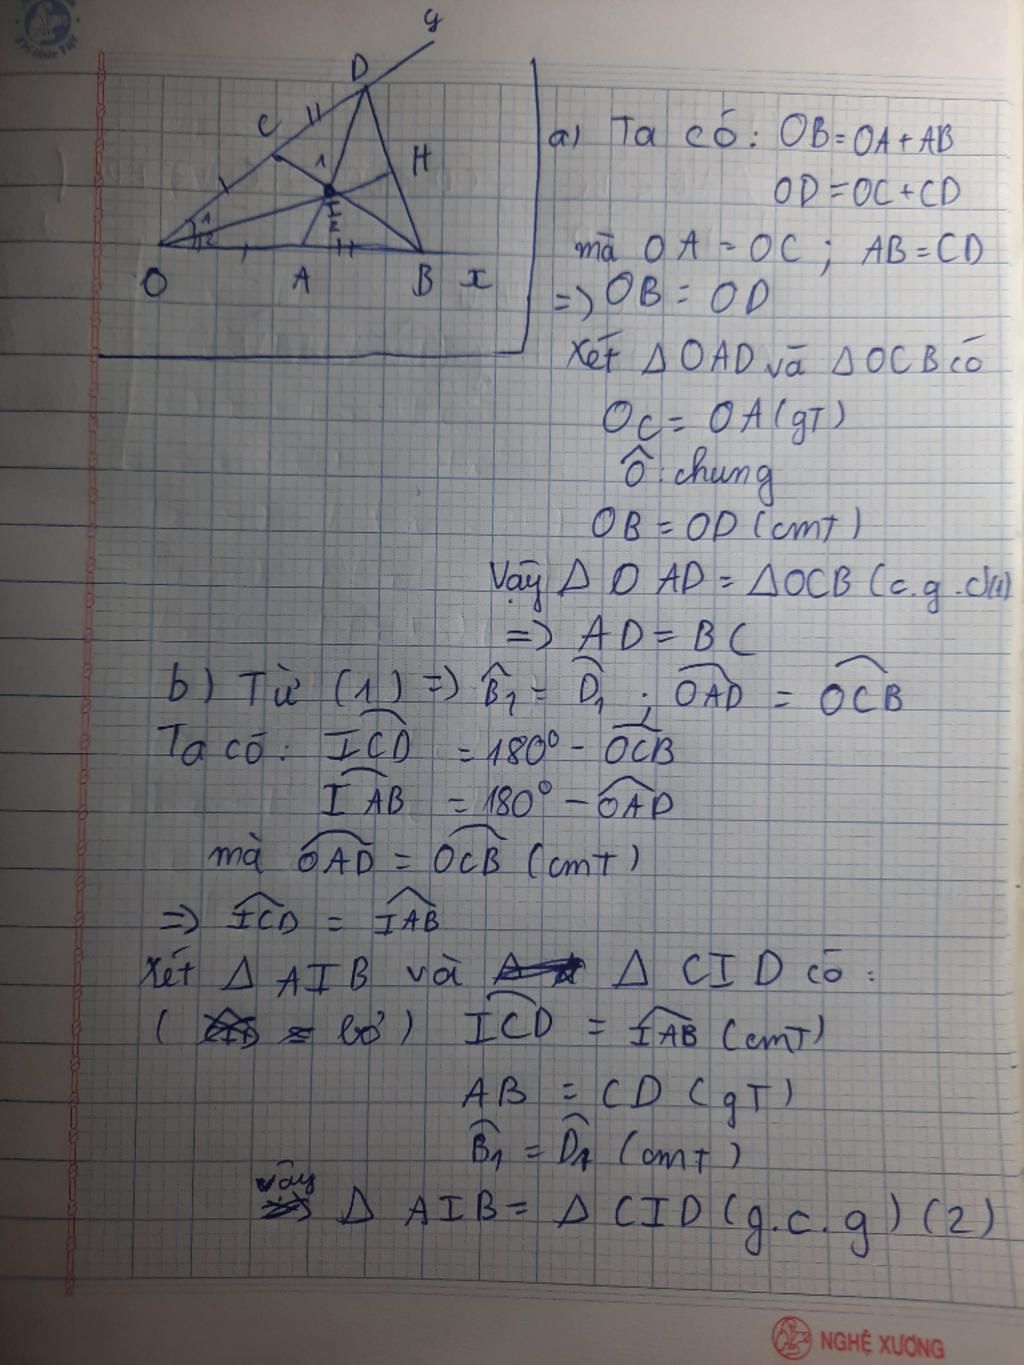 y
D
C
H
1
I
2
1
2
O
A
B
x
a) Ta có: OB = OA + AB
OD = OC + CD
mà OA = OC ; AB = CD
=> OB = OD
Xét Δ OAD và Δ OCB có
OC = OA (gT)
Ô : chung
OB = OD (cmT)
Vậy Δ OAD = Δ OCB (c.g.c) (1)
=> AD = BC
b) Từ (1) => B̂₁ = D̂₁ ; OAD̂ = OCB̂
Ta có: ICD̂ = 180° - OCB̂
IAB̂ = 180° - OAD̂
mà OAD̂ = OCB̂ (cmT)
=> ICD̂ = IAB̂
Xét Δ AIB và Δ CID có:
( bỏ ) ICD̂ = IAB̂ (cmT)
AB = CD (gT)
B̂₁ = D̂₁ (cmT)
vậy Δ AIB = Δ CID (g.c.g) (2)
NGHỆ XƯƠNG